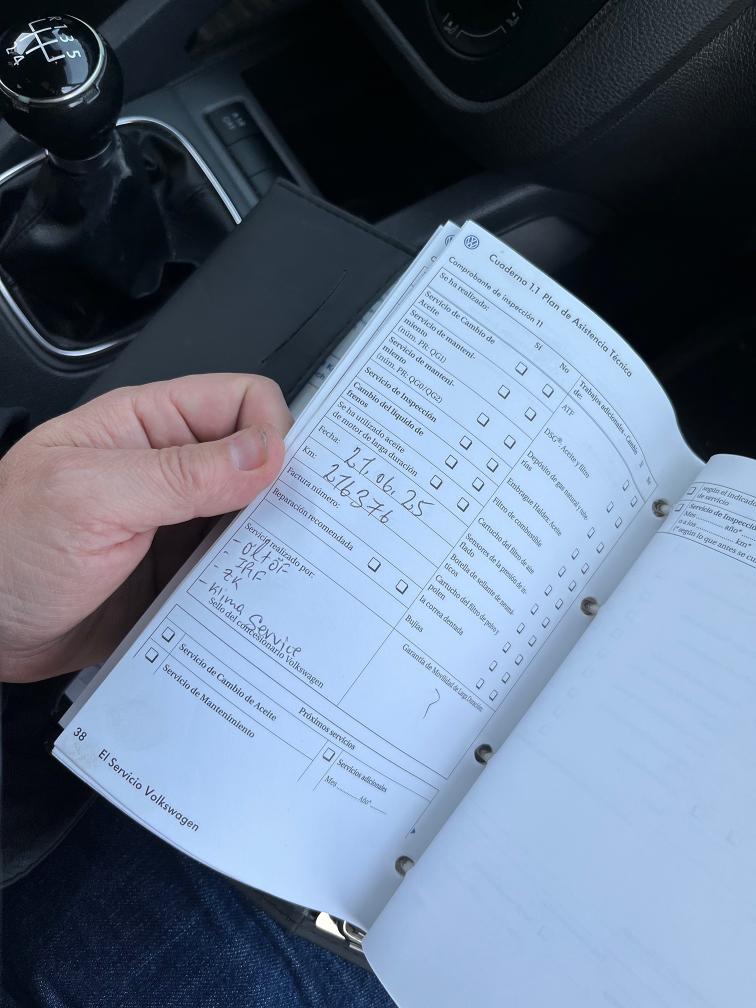 R 1 3 5
2 4
Cuaderno 1.1 Plan de Asistencia Técnica
Comprobante de inspección 11
Se ha realizado:
Sí
No
Servicio de Cambio de
Aceite
Servicio de manteni-
miento
(núm. PR: QG1)
Servicio de manteni-
miento
(núm. PR: QG0/QG2)
Servicio de Inspección
Cambio del líquido de
frenos
Se ha utilizado aceite
de motor de larga duración
Fecha: 21.06.25
Km: 216376
Factura número:
Reparación recomendada
Servicio realizado por:
- Öl+ÖF
- IRF
- ZK
- Klima Service
Sello del concesionario Volkswagen
Trabajos adicionales - Cambio
de:
Sí
No
ATF
DSG®. Aceite y filtro
Depósito de gas natural, jue-
rías
Embrague Haldex, Aceite
Filtro de combustible
Cartucho del filtro de aire
Sensores de la presión de in-
flado
Botella de sellante de neumá-
ticos
Cartucho del filtro de polvo y
polen
la correa dentada
Bujías
Garantía de Movilidad de Larga Duración:
Próximos servicios
Servicio de Cambio de Aceite
Servicio de Mantenimiento
Servicios adicionales
Mes Año*
38
El Servicio Volkswagen
según el indicador
de servicio
Servicio de Inspección
Mes año*
o a los km*
(*según lo que antes se cu